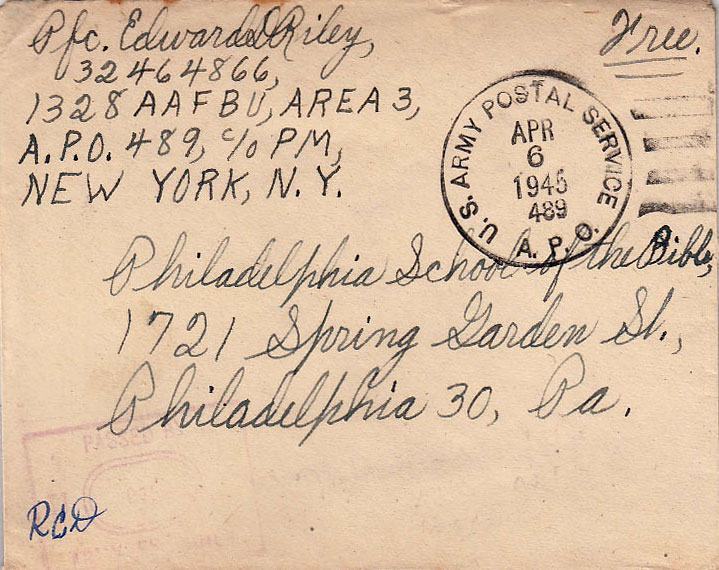 Pfc. Edward D Riley,
32464866,
1328 AAFBU, AREA 3,
A.P.O. 489, c/o PM,
NEW YORK, N.Y.
Free.
U.S. ARMY POSTAL SERVICE
APR
6
1945
489
A.P.O.
Philadelphia School of the Bible,
1721 Spring Garden St.,
Philadelphia 30, Pa.
PASSED BY
RCD